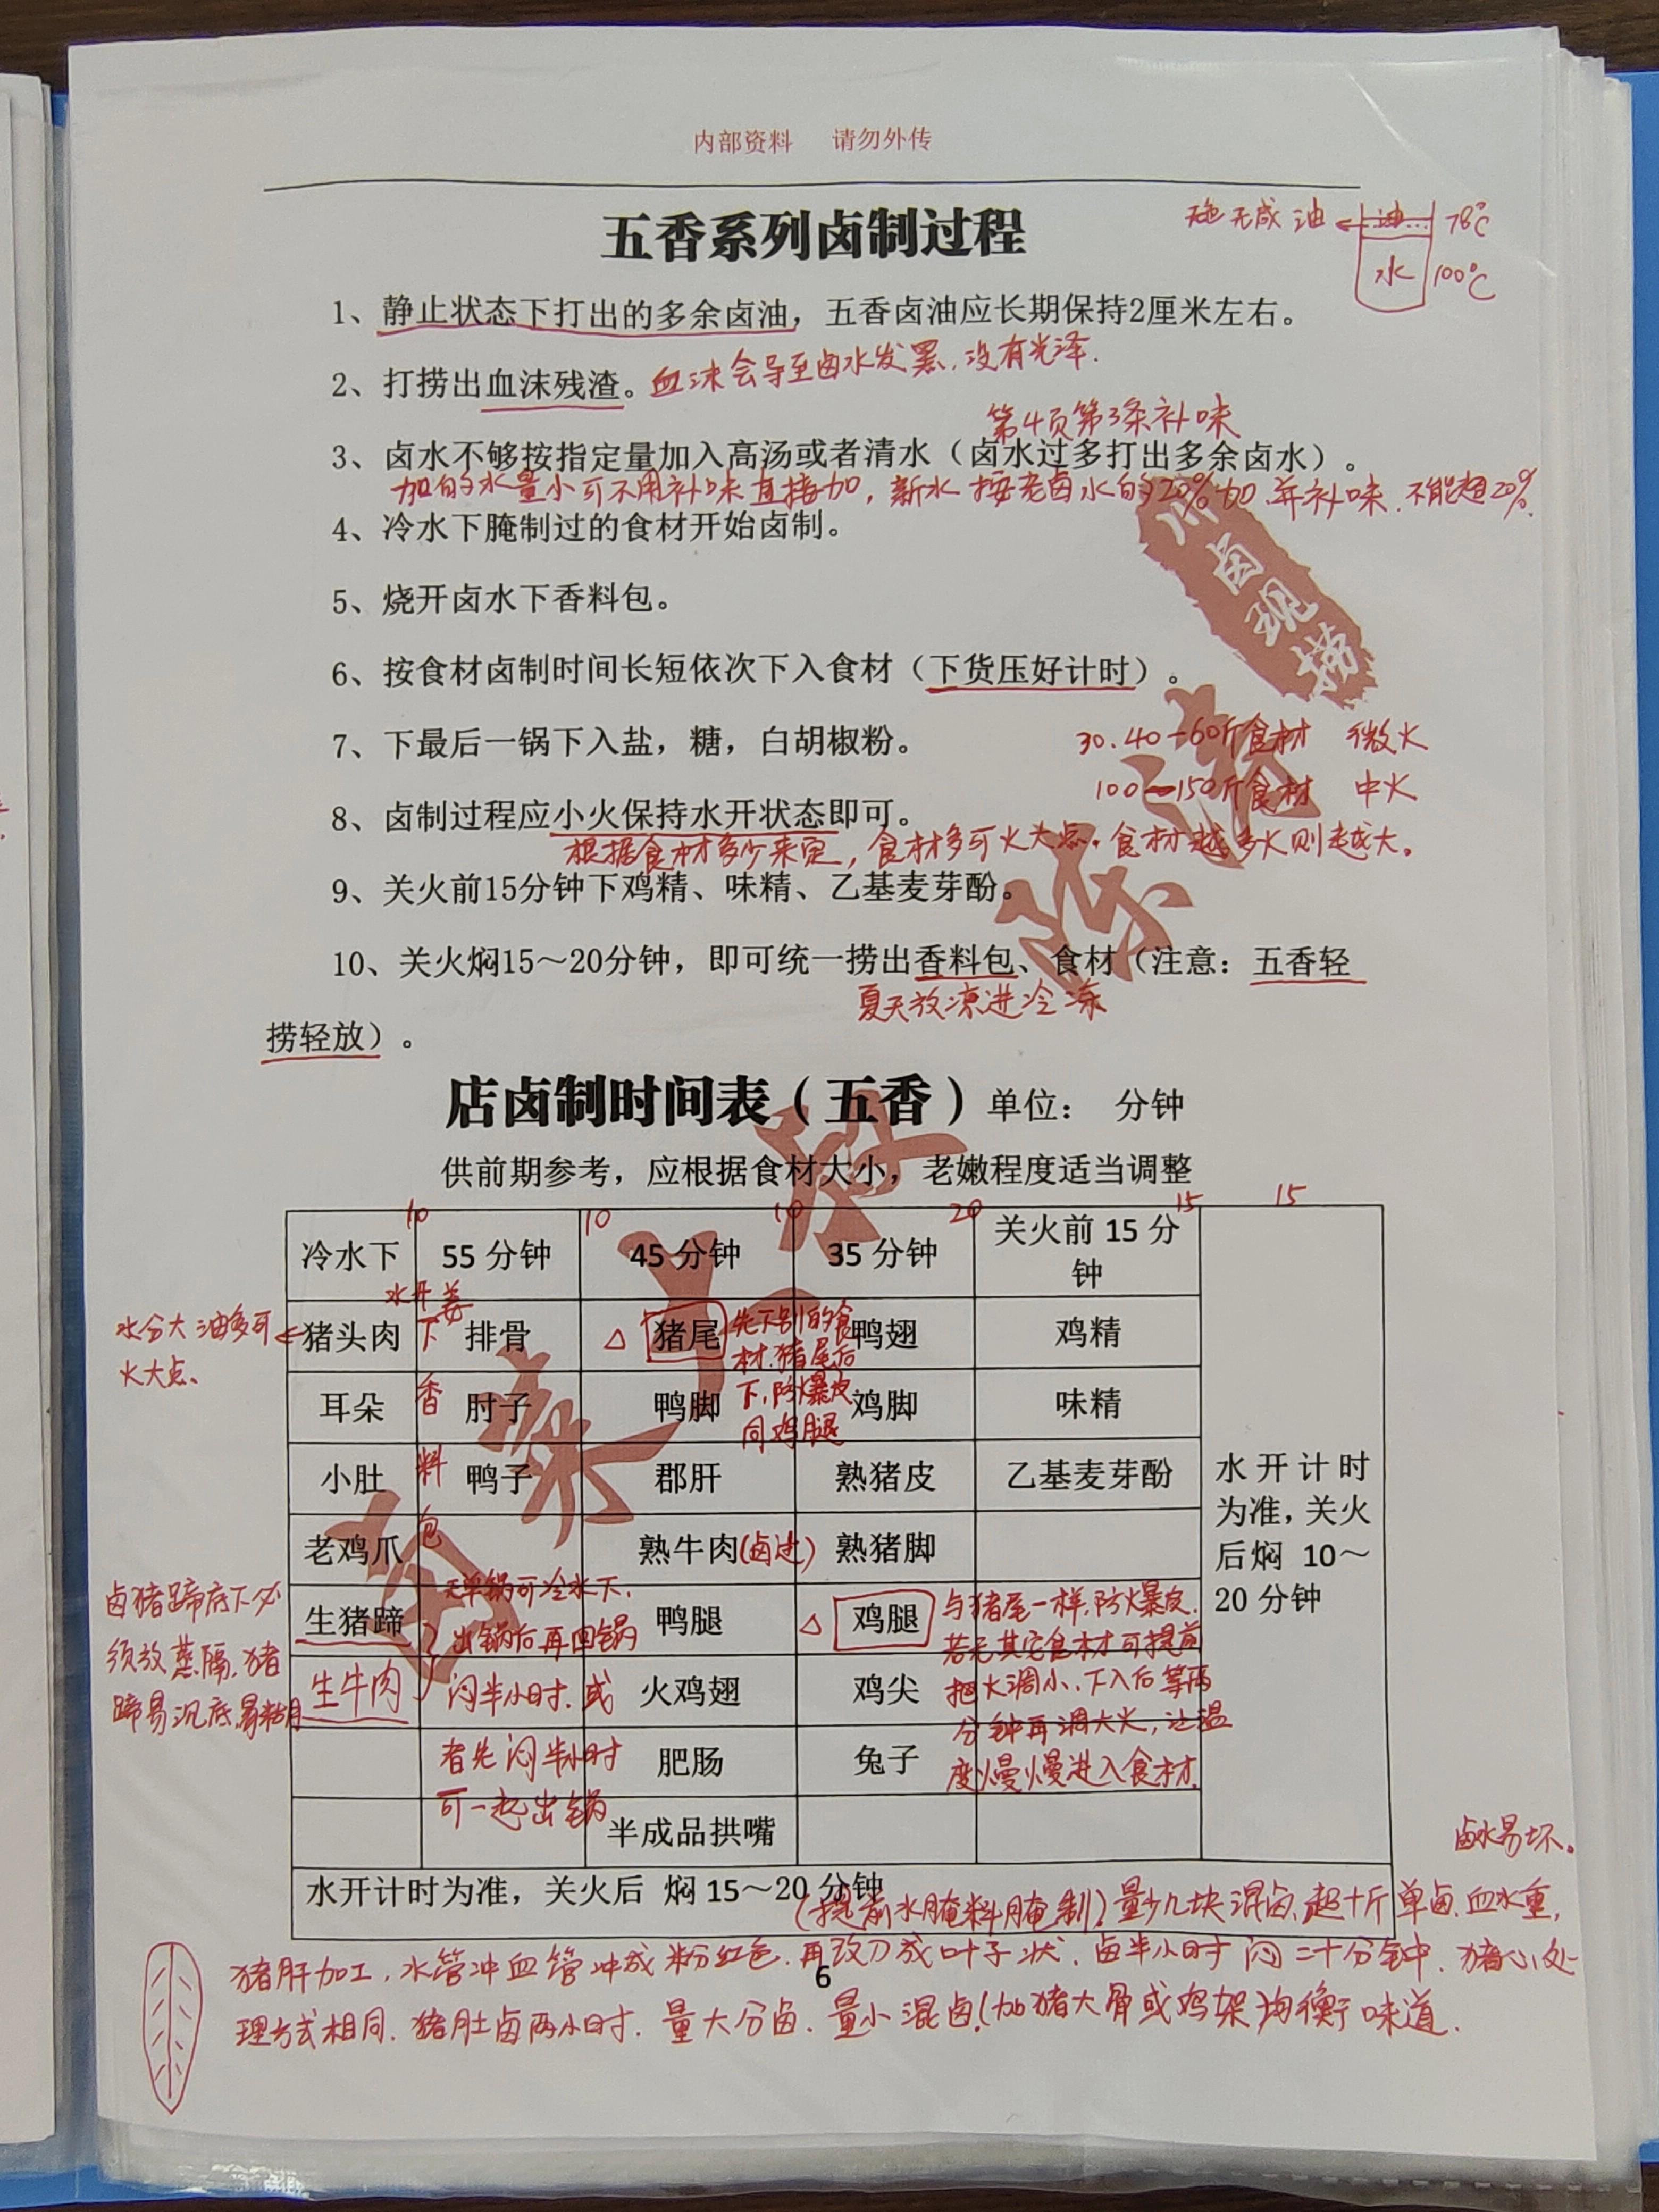 内部资料 请勿外传
五香系列卤制过程
无咸 油 ← 油 78℃
水 100℃
1、静止状态下打出的多余卤油，五香卤油应长期保持2厘米左右。
2、打捞出血沫残渣。血沫会导至卤水发黑，没有光泽.
第4页第3条补味
3、卤水不够按指定量加入高汤或者清水（卤水过多打出多余卤水）。
加的水量小可不用补味直接加，新水按老卤水的20%加.并补味.不能超20%.
4、冷水下腌制过的食材开始卤制。
川卤现捞
5、烧开卤水下香料包。
6、按食材卤制时间长短依次下入食材（下货压好计时）。
7、下最后一锅下入盐，糖，白胡椒粉。
30.40-60斤食材 微火
100—150斤食材 中火
8、卤制过程应小火保持水开状态即可。
根据食材多少来定，食材多可火大点。食材越多火则越大。
9、关火前15分钟下鸡精、味精、乙基麦芽酚。
10、关火焖15～20分钟，即可统一捞出香料包、食材（注意：五香轻
夏天放凉进冷冻
捞轻放）。
店卤制时间表（五香）单位： 分钟
供前期参考，应根据食材大小，老嫩程度适当调整
10 10 10 20 15 15
冷水下 55 分钟 45 分钟 35 分钟 关火前 15 分钟
水开姜
水分大油多可火大点、
猪头肉 下 排骨 △ 猪尾 鸭翅 鸡精
先下别的食材.猪尾后下,防爆皮同鸡腿
耳朵 香 肘子 鸭脚 鸡脚 味精
小肚 料 鸭子 郡肝 熟猪皮 乙基麦芽酚
水开计时为准，关火后焖 10～20 分钟
老鸡爪 包 熟牛肉(卤过) 熟猪脚
卤猪蹄底下必须放蒸隔.猪蹄易沉底易粘
生猪蹄 鸭腿 △ 鸡腿
生牛肉 火鸡翅 鸡尖
单锅可冷水下.
出锅后再回锅
闷半小时.或
者先闷半小时
可一起出锅
与猪尾一样.防爆皮.
若无其它食材可提前
把火调小.下入后等两
分钟再调大火，让温
度慢慢进入食材.
肥肠 兔子
半成品拱嘴
卤水易坏。
水开计时为准，关火后 焖 15～20 分钟
(提前水腌料腌制)量少几块混卤、超十斤单卤.血水重,
猪肝加工.水管冲血管冲成粉红色.再改刀成叶子状.卤半小时闷二十分钟.猪心处
6
理方式相同.猪肚卤两小时.量大分卤.量小混卤.(加猪大骨或鸡架均衡味道.